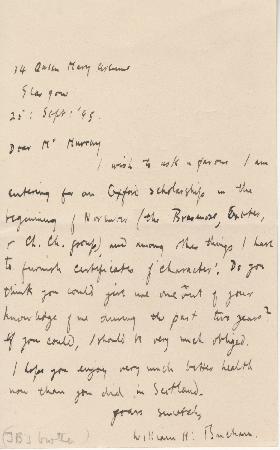 34 Queen Mary Avenue
Glasgow
25: Sept: '95.
Dear Mr Murray
I wish to ask a favour I am
entering for an Oxford scholarship in the
beginning of November (the Brasenose, Exeter,
or Ch. Ch. group) and among other things I have
to furnish certificates of 'character'. Do you
think you could give me one out of your
knowledge of me during the past two years?
If you could, I should be very much obliged.
I hope you enjoy very much better health
now than you did in Scotland.
yours sincerely
William H: Buchan.
(JB's brother)